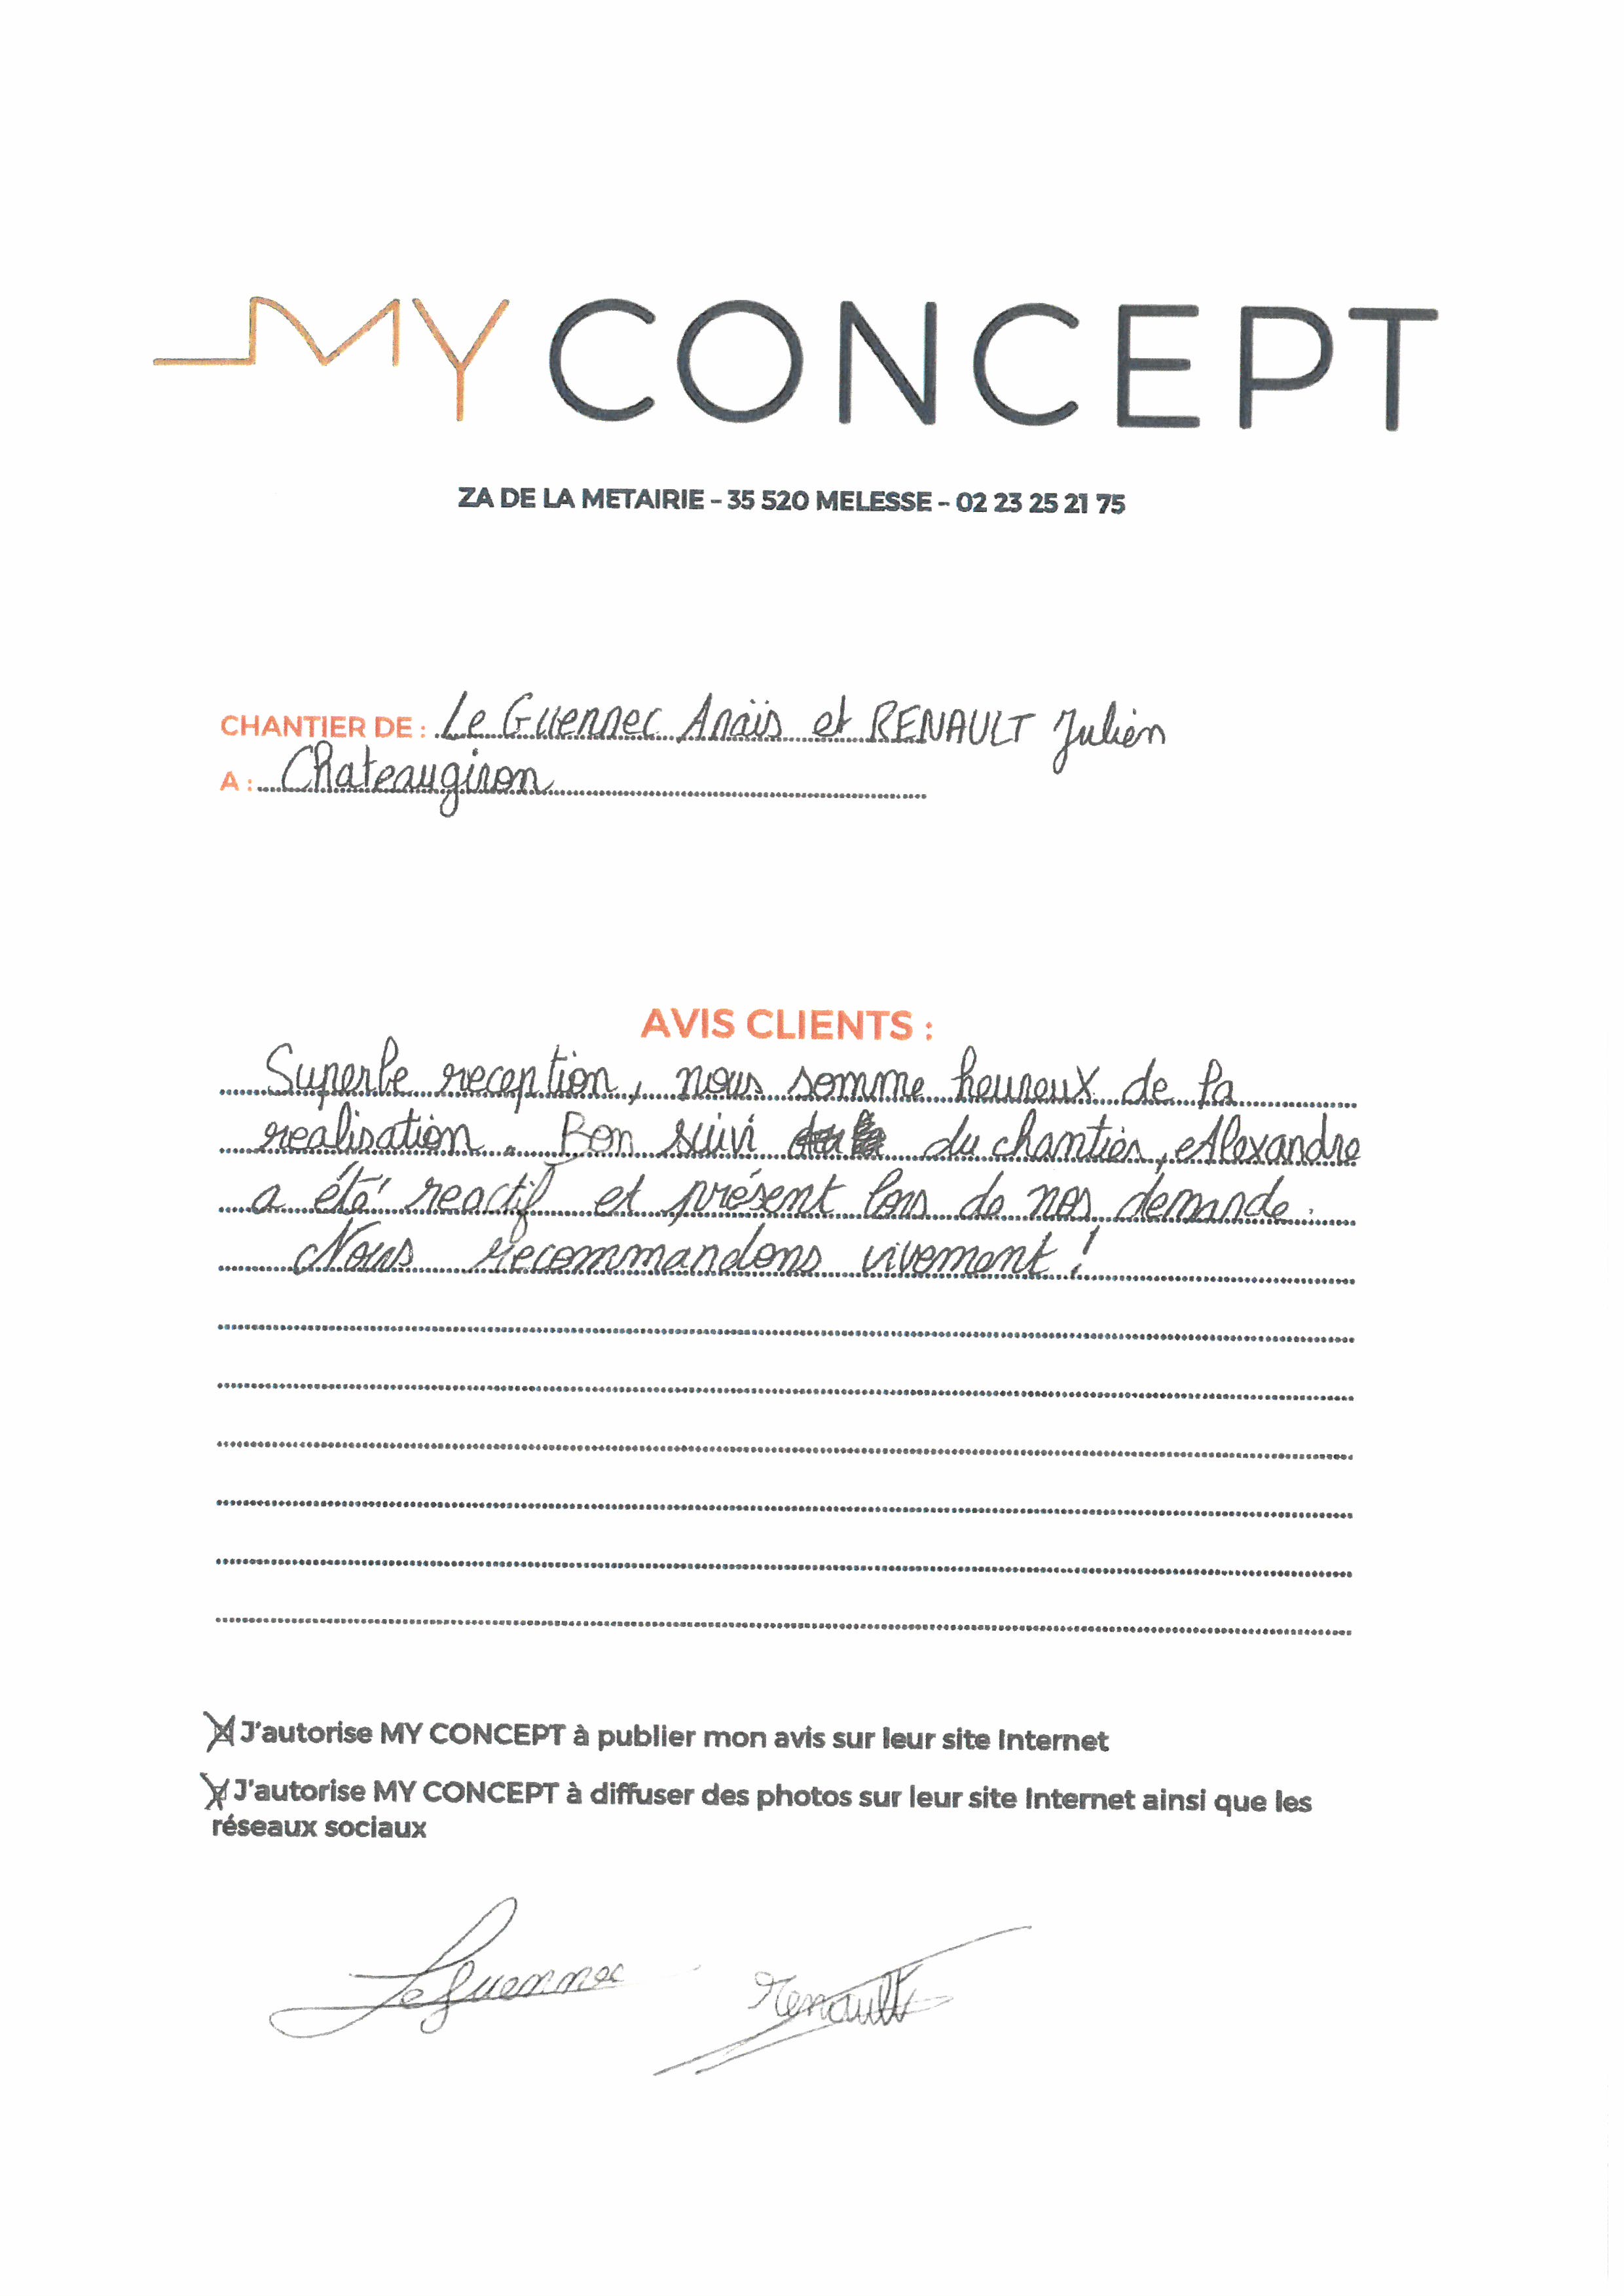 MY CONCEPT
ZA DE LA METAIRIE - 35 520 MELESSE - 02 23 25 21 75
CHANTIER DE : Le Guennec Anaïs et RENAULT Julien
A : Chateaugiron
AVIS CLIENTS :
Superbe reception, nous somme heureux de la
realisation. Bon suivi du chantier, Alexandre
a été reactif et présent lors de nos demande.
Nous recommandons vivement !
J'autorise MY CONCEPT à publier mon avis sur leur site Internet
J'autorise MY CONCEPT à diffuser des photos sur leur site Internet ainsi que les
réseaux sociaux
Le Guennec Renault